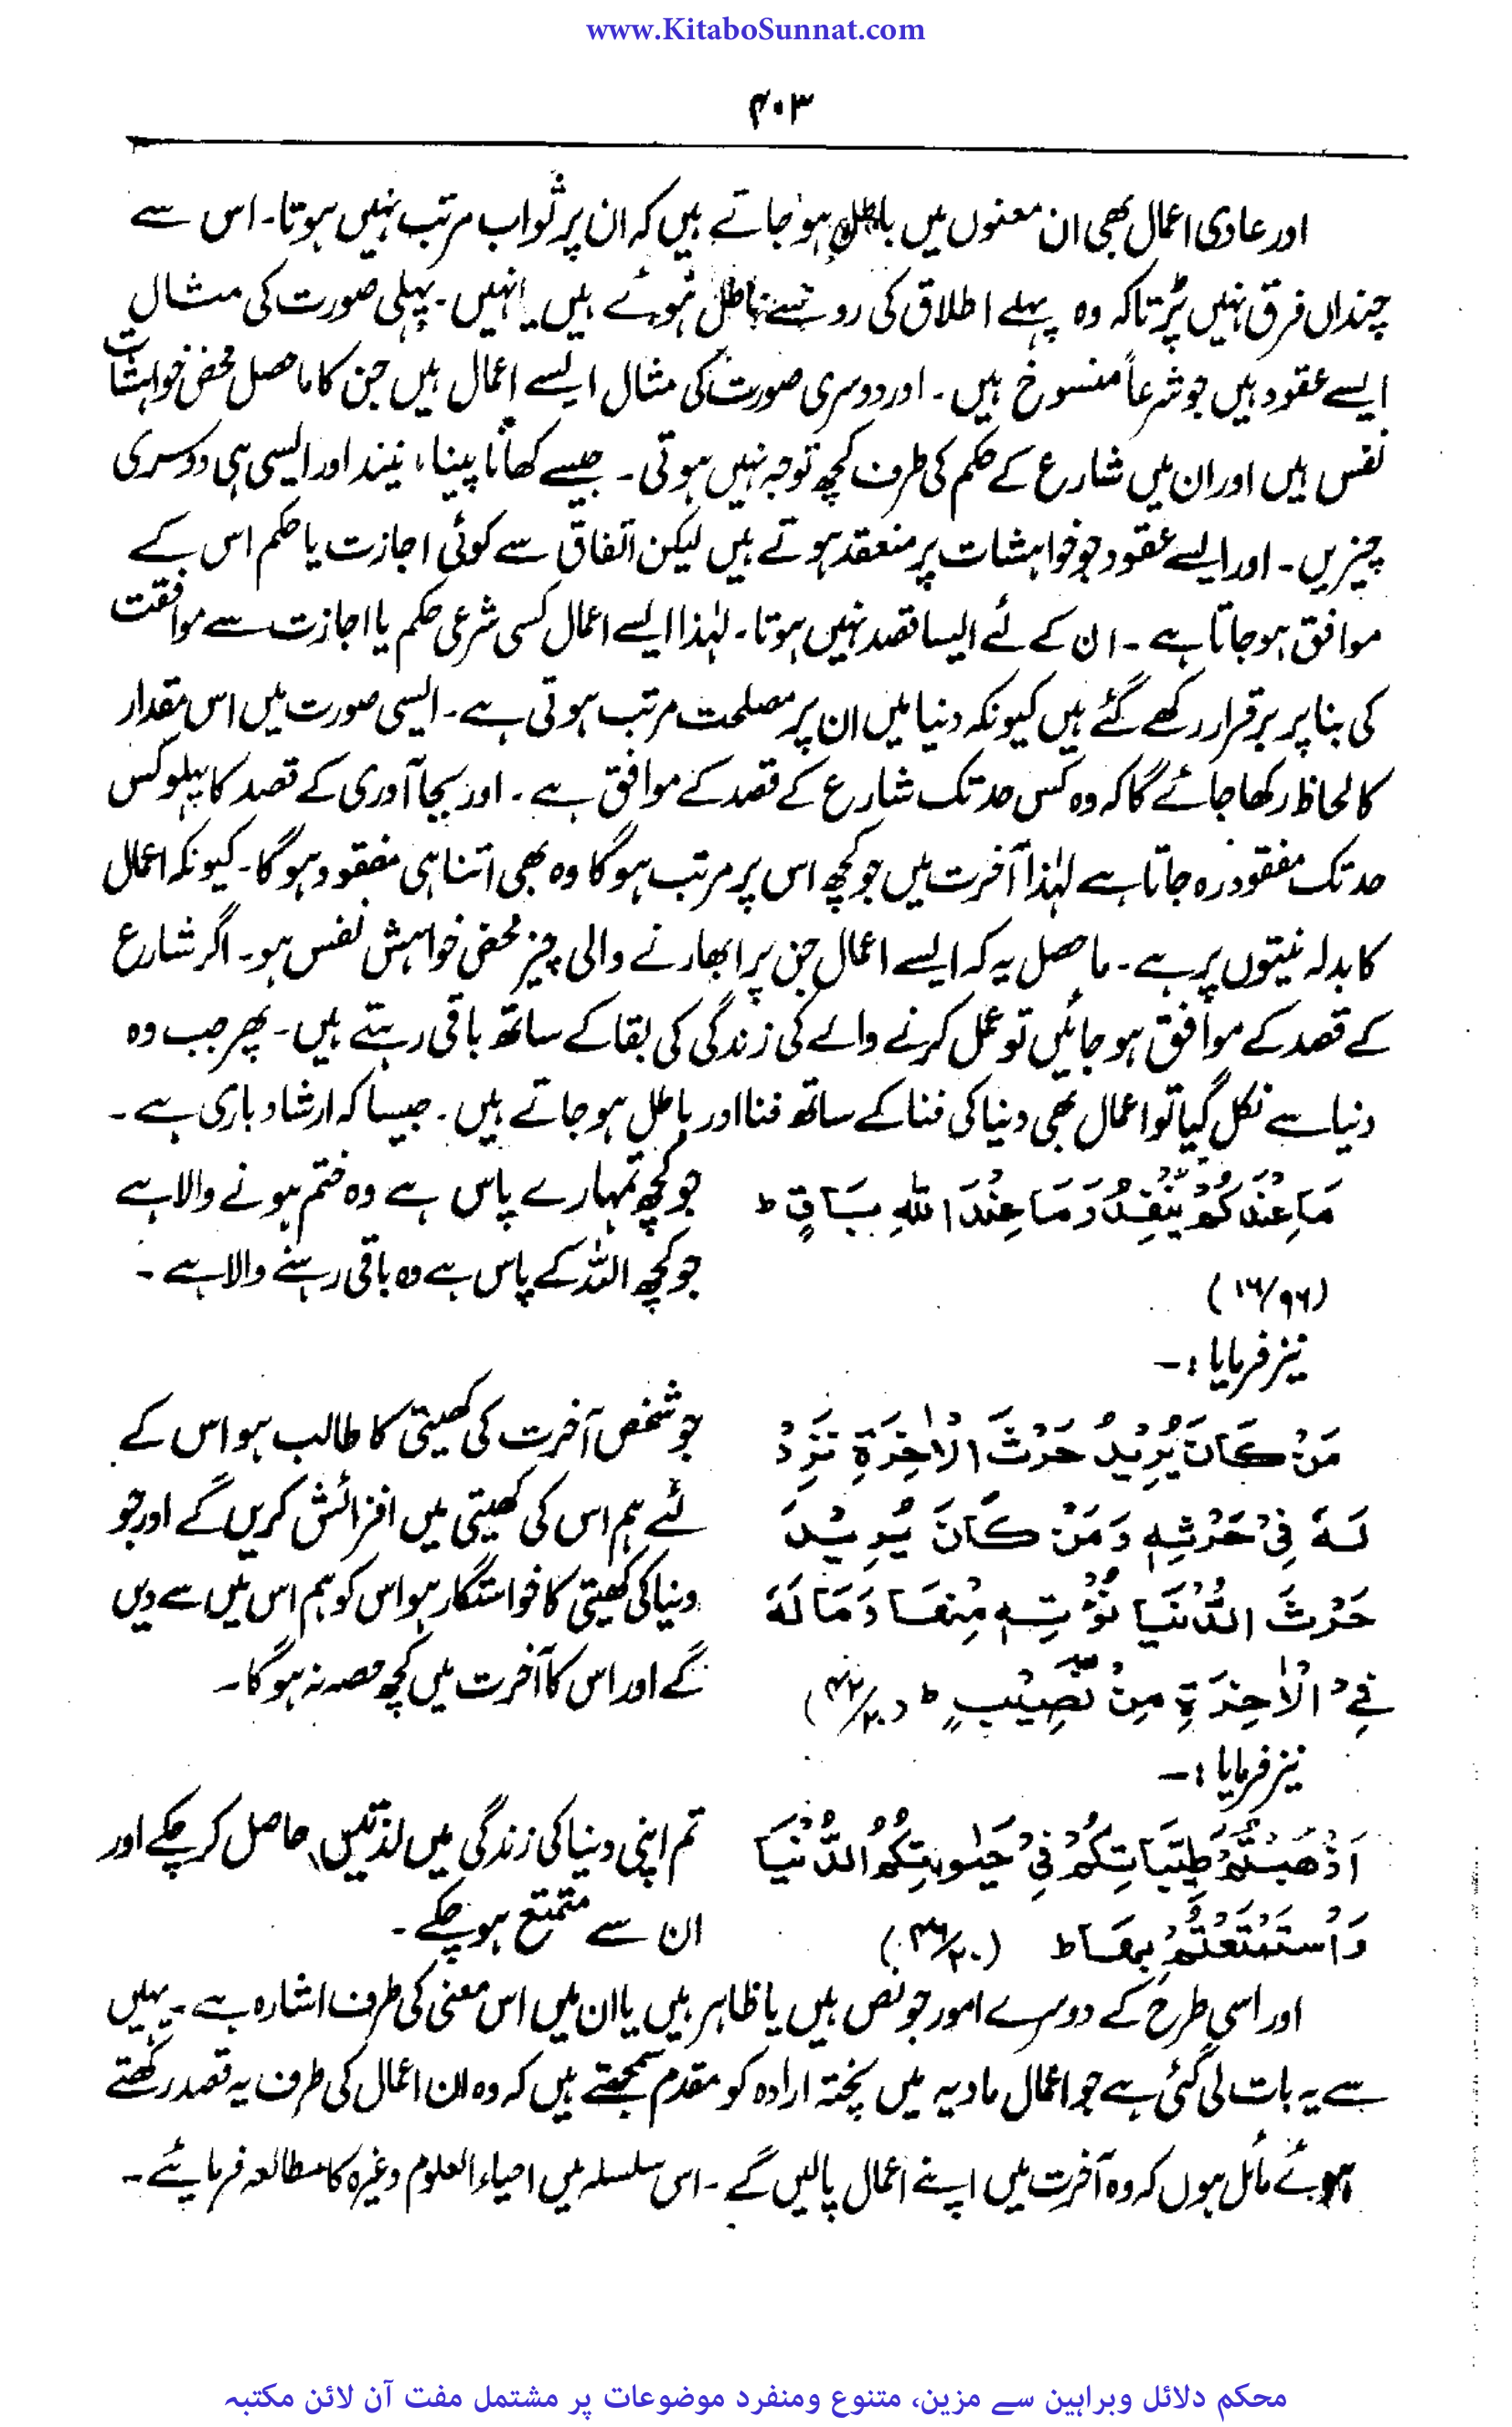 www.KitaboSunnat.com
۴۰۳
اور عادی اعمال بھی ان معنوں میں باطل ہو جاتے ہیں کہ ان پر ثواب مرتب نہیں ہوتا۔ اس سے
چنداں فرق نہیں پڑتا کہ وہ پہلے اطلاق کی رو سے باطل ہوئے ہیں یا نہیں۔ پہلی صورت کی مثال
ایسے عقود ہیں جو شرعاً منسوخ ہیں۔ اور دوسری صورت کی مثال ایسے اعمال ہیں جن کا ماحصل محض خواہشات
نفس ہیں اور ان میں شارع کے حکم کی طرف کچھ توجہ نہیں ہوتی۔ جیسے کھانا پینا، نیند اور ایسی ہی دوسری
چیزیں۔ اور ایسے عقود جو خواہشات پر منعقد ہوتے ہیں لیکن اتفاق سے کوئی اجازت یا حکم اس کے
موافق ہو جاتا ہے۔ ان کے لئے ایسا قصد نہیں ہوتا۔ لہٰذا ایسے اعمال کسی شرعی حکم یا اجازت سے موافقت
کی بنا پر برقرار رکھے گئے ہیں کیونکہ دنیا میں ان پر مصلحت مرتب ہوتی ہے۔ ایسی صورت میں اس مقدار
کا لحاظ رکھا جائے گا کہ وہ کس حد تک شارع کے قصد کے موافق ہے۔ اور بجا آوری کے قصد کا پہلو کس
حد تک مفقود رہ جاتا ہے لہٰذا آخرت میں جو کچھ اس پر مرتب ہوگا وہ بھی اتنا ہی مفقود ہوگا۔ کیونکہ اعمال
کا بدلہ نیتوں پر ہے۔ ماحصل یہ کہ ایسے اعمال جن پر ابھارنے والی چیز محض خواہش نفس ہو۔ اگر شارع
کے قصد کے موافق ہو جائیں تو عمل کرنے والے کی زندگی کی بقا کے ساتھ باقی رہتے ہیں۔ پھر جب وہ
دنیا سے نکل گیا تو اعمال بھی دنیا کی فنا کے ساتھ فنا اور باطل ہو جاتے ہیں۔ جیسا کہ ارشاد باری ہے۔
مَا عِنْدَكُمْ يَنْفَدُ وَمَا عِنْدَ اللّٰهِ بَاقٍ ط
(۱۶/۹۶)
جو کچھ تمہارے پاس ہے وہ ختم ہونے والا ہے
جو کچھ اللہ کے پاس ہے وہ باقی رہنے والا ہے۔
نیز فرمایا :۔
مَنْ كَانَ يُرِيْدُ حَرْثَ الْاٰخِرَةِ نَزِدْ
لَهٗ فِيْ حَرْثِهٖ وَمَنْ كَانَ يُرِيْدُ
حَرْثَ الدُّنْيَا نُؤْتِهٖ مِنْهَا وَمَا لَهٗ
فِي الْاٰخِرَةِ مِنْ نَّصِيْبٍ ط (۴۲/۲۰)
جو شخص آخرت کی کھیتی کا طالب ہو اس کے
لئے ہم اس کی کھیتی میں افزائش کریں گے اور جو
دنیا کی کھیتی کا خواستگار ہو اس کو ہم اس میں سے دیں
گے اور اس کا آخرت میں کچھ حصہ نہ ہوگا۔
نیز فرمایا :۔
اَذْهَبْتُمْ طَيِّبَاتِكُمْ فِيْ حَيٰوتِكُمُ الدُّنْيَا
وَاسْتَمْتَعْتُمْ بِهَا ط (۴۶/۲۰)
تم اپنی دنیا کی زندگی میں لذتیں حاصل کر چکے اور
ان سے متمتع ہو چکے۔
اور اسی طرح کے دوسرے امور جو نص ہیں یا ظاہر ہیں یا ان میں اس معنی کی طرف اشارہ ہے۔ یہیں
سے یہ بات لی گئی ہے جو اعمال عادیہ میں پختہ ارادہ کو مقدم سمجھتے ہیں کہ وہ ان اعمال کی طرف یہ قصد رکھتے
ہوئے مائل ہوں کہ وہ آخرت میں اپنے اعمال پالیں گے۔ اس سلسلہ میں احیاء العلوم وغیرہ کا مطالعہ فرمائیے۔
محکم دلائل وبراہین سے مزین، متنوع ومنفرد موضوعات پر مشتمل مفت آن لائن مکتبہ